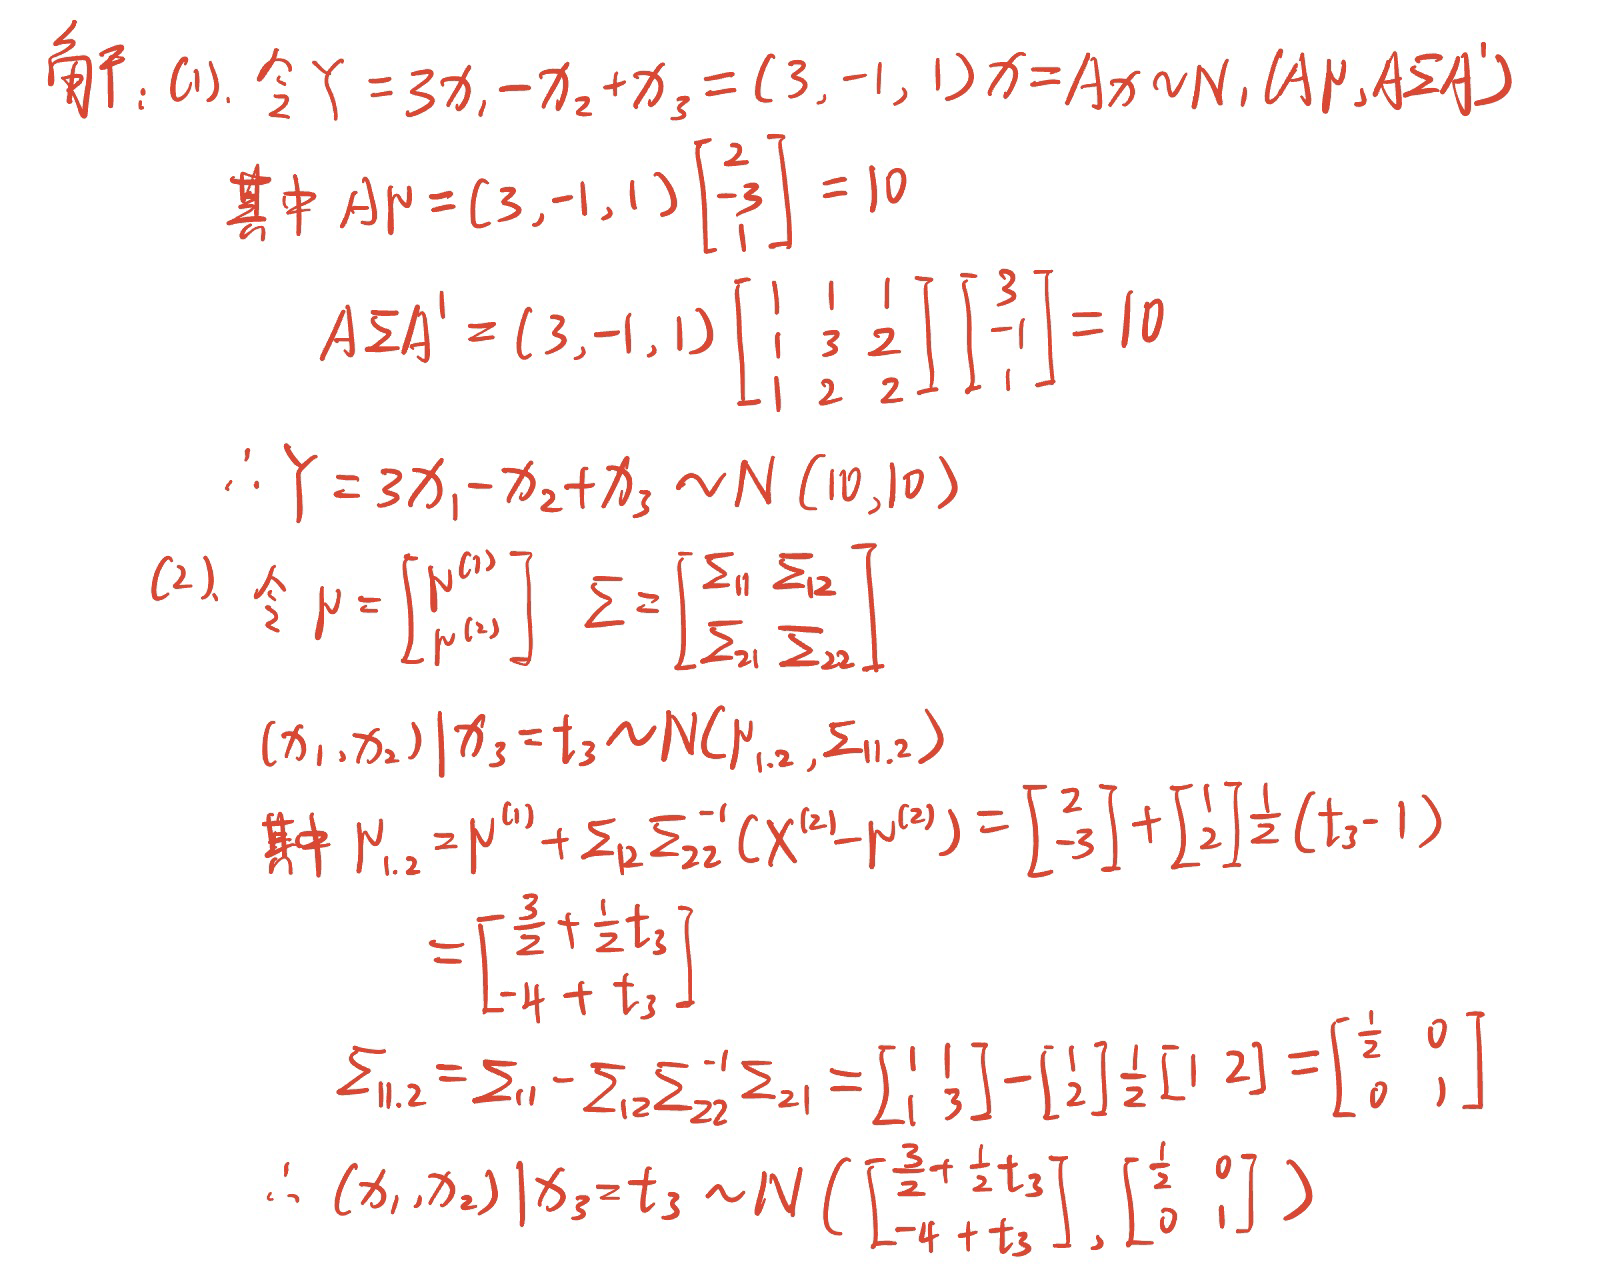 解:(1). 令Y = 3x₁ - x₂ + x₃ = (3, -1, 1)x = Ax ~ N₁(Aμ, AΣA')
其中 Aμ = (3, -1, 1) [2; -3; 1] = 10
AΣA' = (3, -1, 1) [1 1 1; 1 3 2; 1 2 2] [3; -1; 1] = 10
∴ Y = 3x₁ - x₂ + x₃ ~ N(10, 10)
(2). 令 μ = [μ⁽¹⁾; μ⁽²⁾] Σ = [Σ₁₁ Σ₁₂; Σ₂₁ Σ₂₂]
(x₁, x₂) | x₃ = t₃ ~ N(μ₁.₂, Σ₁₁.₂)
其中 μ₁.₂ = μ⁽¹⁾ + Σ₁₂Σ₂₂⁻¹(X⁽²⁾ - μ⁽²⁾) = [2; -3] + [1; 2] 1/2 (t₃ - 1)
= [3/2 + 1/2 t₃; -4 + t₃]
Σ₁₁.₂ = Σ₁₁ - Σ₁₂Σ₂₂⁻¹Σ₂₁ = [1 1; 1 3] - [1; 2] 1/2 [1 2] = [1/2 0; 0 1]
∴ (x₁, x₂) | x₃ = t₃ ~ N([3/2 + 1/2 t₃; -4 + t₃], [1/2 0; 0 1])